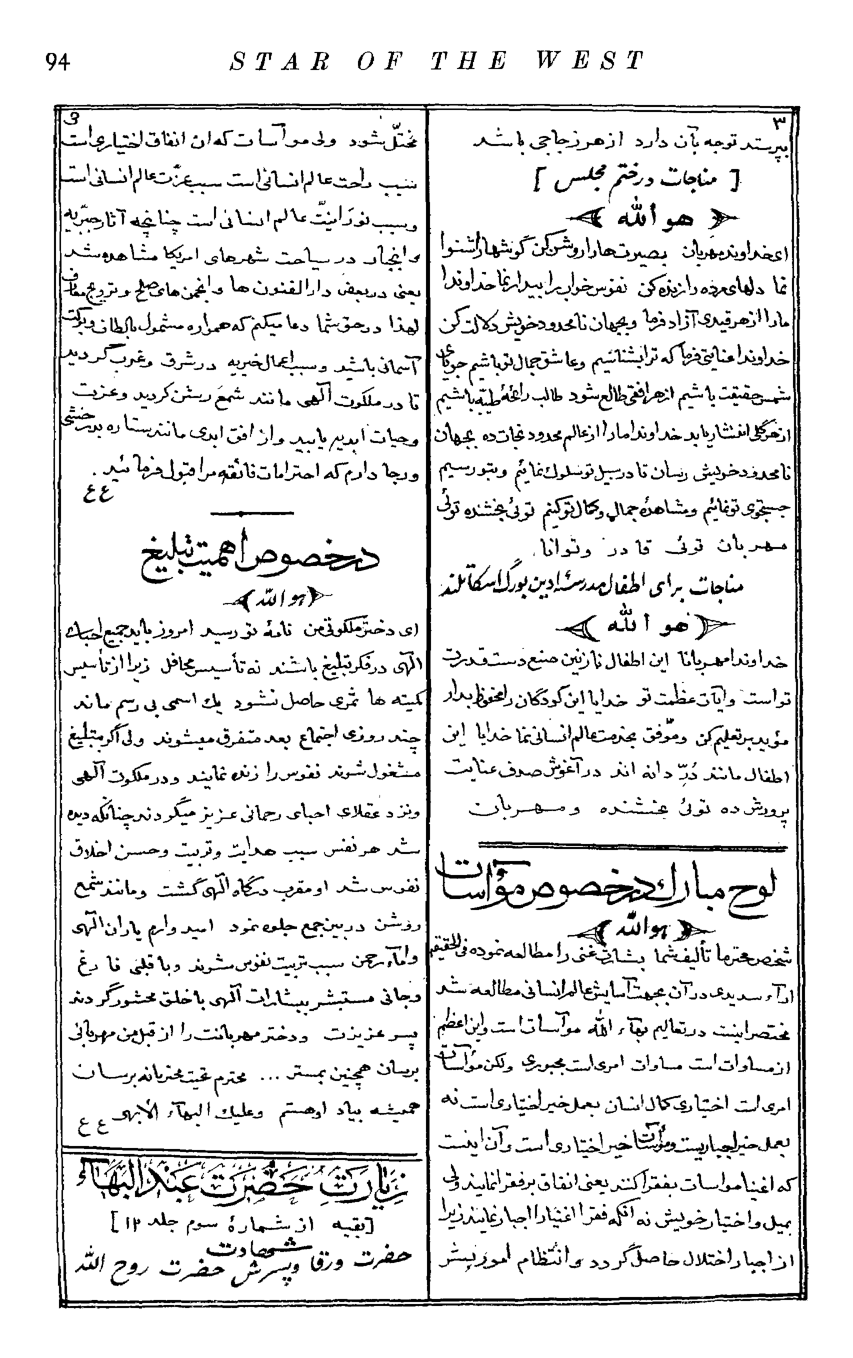 94 STAR OF THE WEST
٣
بپرستد توجه بآن دارد از هر زجاجی باشد
[ مناجات در ختم مجلس ]
هو الله
ای خداوند مهربان بصیرتها را روشن کن گوشها را شنوا
نما دلهای مرده را زنده کن نفوس خواب را بیدار نما خداوندا
ما را از هر قیدی آزاد فرما و بجهان نامحدود خویش دلالت کن
خداوندا عنایتی فرما که ترا بشناسیم و عاشق جمال تو باشیم جویای
شمس حقیقت باشیم از هر افقی طالع شود طالب رائحهٔ طیّبه باشیم
از هر گلی انتشار یابد خداوندا ما را از عالم محدود نجات ده بجهان
نامحدود خویش رسان تا در سبیل تو سلوک نمائیم و بتو رسیم
جستجوی تو نمائیم و مشاهدهٔ جمال و کمال تو کنیم توئی بخشنده توئی
مهربان توئی قادر و توانا
مناجات برای اطفال مدرسهٔ ادین بورگ اسکاتلند
هو الله
خداوندا مهربانا این اطفال نازنین صنع دست قدرت
تو است و آیات عظمت تو خدایا این کودکان را محفوظ بدار
مؤید بر تعلیم کن و موفق بخدمت عالم انسانی نما خدایا این
اطفال مانند دُرّ دانه اند در آغوش صدف عنایت
پرورش ده توئی بخشنده و مهربان
لوح مبارک در خصوص مؤاسات
هو الله
شخص محترما تألیف شما بشارتی غنی را مطالعه نموده فی الحقیقه
آراء سدیدی در آن بجهت آسایش عالم انسانی مطالعه شد
مختصر اینست در تعالیم بهاء الله مواسات است و این اعظم
از مساوات است مساوات امریست مجبوری ولکن مؤاسات
امریست اختیاری کمال انسان بعمل خیر اختیاری است نه
بعمل خیر اجباریست و مؤاسات خیر اختیاری است و آن اینست
که اغنیا مواسات بفقرا کنند یعنی انفاق بر فقرا نمایند ولی
بمیل و اختیار خویش نه آنکه فقرا اغنیا را اجبار نمایند زیرا
از اجبار اختلال حاصل گردد و انتظام امور بشر
مختلّ شود ولی مواسات که آن انفاق اختیاری است
سبب راحت عالم انسانی است سبب عزّت عالم انسانی است
و سبب نورانیّت عالم انسانی است چنانچه آثار خیریه
آن جناب در سیاحت شهرهای امریکا مشاهده شد
یعنی در بعض دار الفنون ها و انجمن های صلح و ترویج معارف
لهذا در حق شما دعا میکنم که همواره مشمول بالطاف و برکت
آسمانی باشید و سبب اعمال خیریه در شرق و غرب گردید
تا در ملکوت الهی مانند شمع روشن گردید و عزت
و حیات ابدیه یابید و از افق ابدی مانند ستاره بدرخشی
و رجا دارم که احترامات فائقهٔ مرا قبول فرمائید .
ع ع
در خصوص اهمیت تبلیغ
هو الله
ای دختر ملکوتی من نامهٔ تو رسید امروز باید جمیع احبای
الهی در فکر تبلیغ باشند نه تأسیس محافل زیرا از تأسیس
کمیته ها ثمری حاصل نشود یک اسمی بی رسم ماند
چند روزی اجتماع بعد متفرق میشوند ولی اگر بتبلیغ
مشغول شوند نفوس را زنده نمایند و در ملکوت الهی
و نزد عقلای احبای رحمانی عزیز میگردند چنانکه دیده
شد هر نفس سبب هدایت و تربیت و حسن اخلاق
نفوس شد او مقرب درگاه الهی گشت و مانند شمع
روشن در بین جمع جلوه نمود امیدوارم یاران الهی
و اماء رحمن سبب تربیت نفوس شوند و با قلبی فارغ
و جانی مستبشر ببشارات الهی با خلق محشور گردند
پسر عزیزت و دختر مهربانت را از قبل من مهربانی
برسان همچنین بمستر ... محترم تحیت محترمانه برسان
همیشه بیاد او هستم و علیک البهاء الابهی ع ع
زیارت حضرت عبد البهاء
[ بقیه از شمارهٔ سوم جلد ۱۲ ]
شهادت
حضرت ورقا و پسرش حضرت روح الله